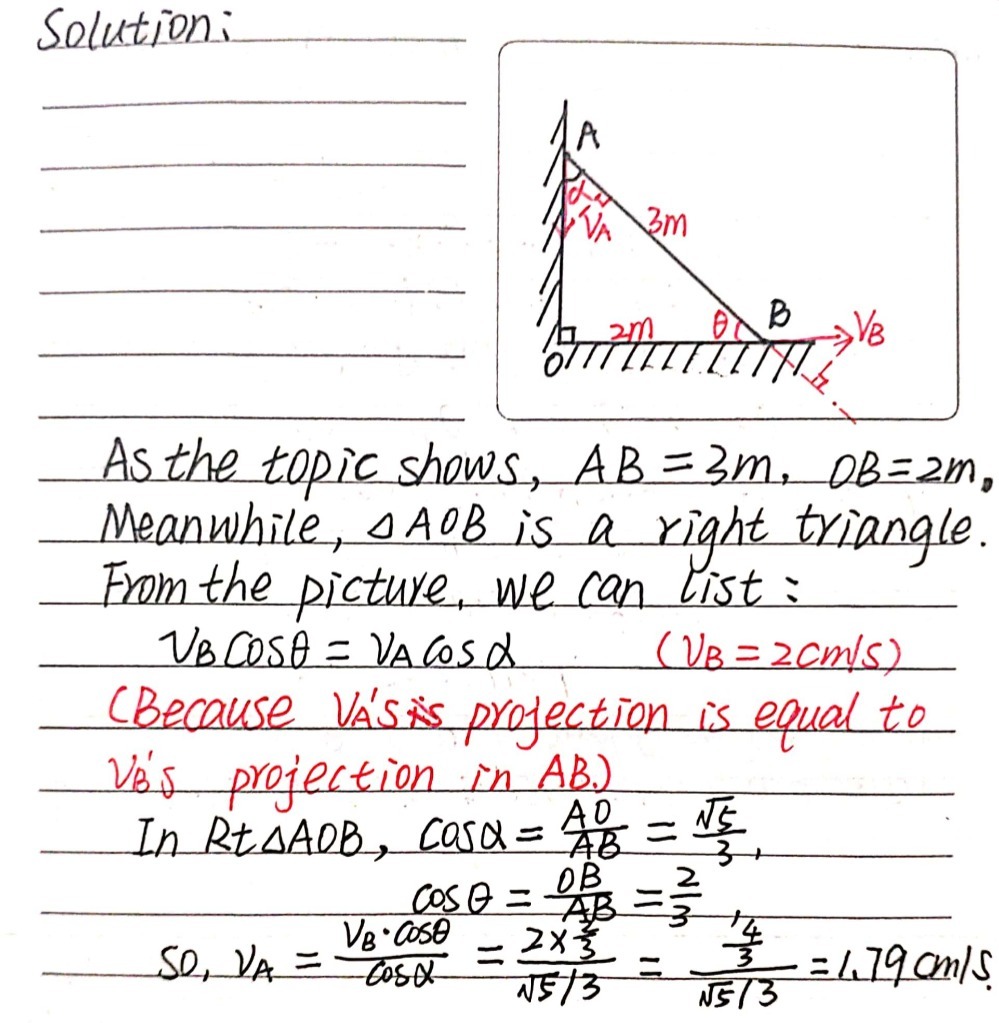 Solution:
A
α
VA
3m
2m
θ
B
VB
O
As the topic shows, AB = 3m, OB = 2m.
Meanwhile, △AOB is a right triangle.
From the picture, we can list:
VB cosθ = VA cosα (VB = 2cm/s)
(Because VA's is projection is equal to
VB's projection in AB.)
In Rt△AOB, cosα = AO/AB = √5/3,
cosθ = OB/AB = 2/3,
so, VA = VB·cosθ/cosα = (2×2/3)/(√5/3) = (4/3)/(√5/3) = 1.79 cm/s.